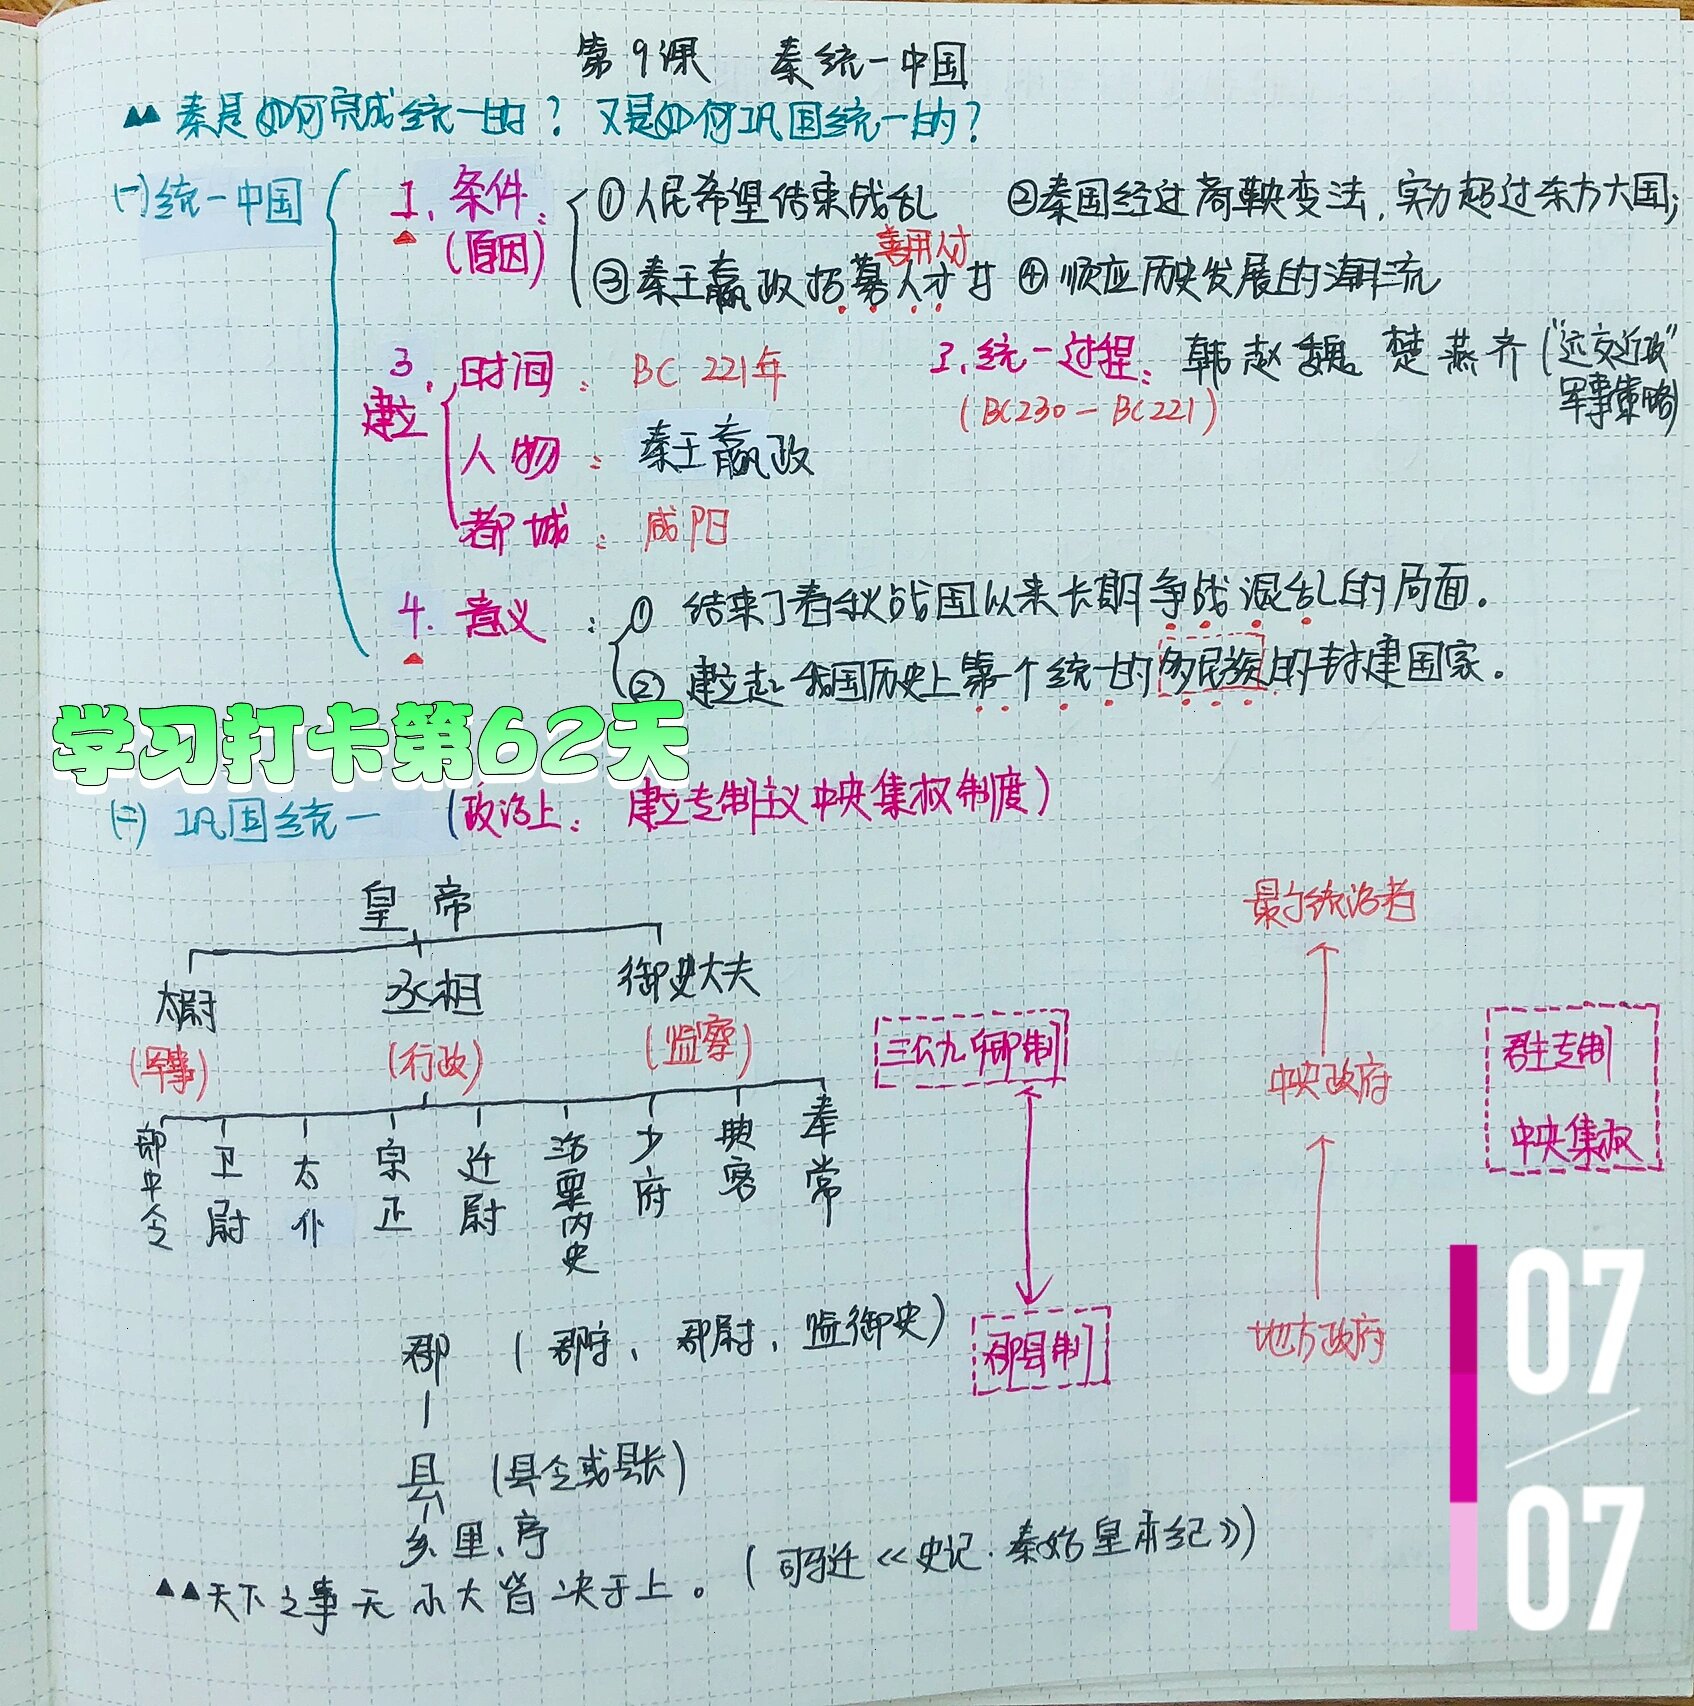 第9课 秦统一中国
▲▲秦是如何完成统一的？又是如何巩固统一的？
(一)统一中国
1、条件：(原因)
①人民希望结束战乱 ②秦国经过商鞅变法,实力超过东方六国;
善用人才
③秦王嬴政招募人才 ④顺应历史发展的潮流
2、统一过程：韩 赵 魏 楚 燕 齐 ("远交近攻"军事策略)
(BC230－BC221)
3、建立
时间：BC 221年
人物：秦王嬴政
都城：咸阳
4.意义：① 结束了春秋战国以来长期争战混乱的局面。
② 建立起我国历史上第一个统一的多民族的封建国家。
学习打卡第62天
(二) 巩固统一 (政治上：建立专制主义中央集权制度)
皇帝
太尉 丞相 御史大夫
(军事) (行政) (监察)
郎中令 卫尉 太仆 宗正 廷尉 治粟内史 少府 典客 奉常
三公九卿制
郡县制
最高统治者
中央政府
地方政府
君主专制
中央集权
郡 (郡守、郡尉、监御史)
县 (县令或县长)
乡、里、亭
▲▲天下之事无小大皆决于上。(司马迁《史记·秦始皇本纪》)
07/07